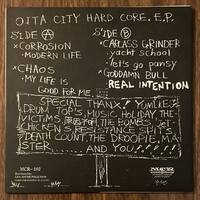 OITA CITY HARD CORE. E.P.
SIDE A
SIDE B
×CORROSION
-MODERN LIFE
×CHAOS
-MY LIFE IS
GOOD FOR ME
×CARLASS GRINDER
-yacht school
×let's go pansy
×GODDAMN BULL
REAL INTENTION
SPECIAL THANX?
DRUM TOP'S, MUSIC HOLIDAY THE
VICTIMS, THE BOMBS
CHICKENS, RESISTANCE SPITS
DEATH COUNT THE DROOPIE, MA
STER....... AND YOU!!
MCR-102
MCR